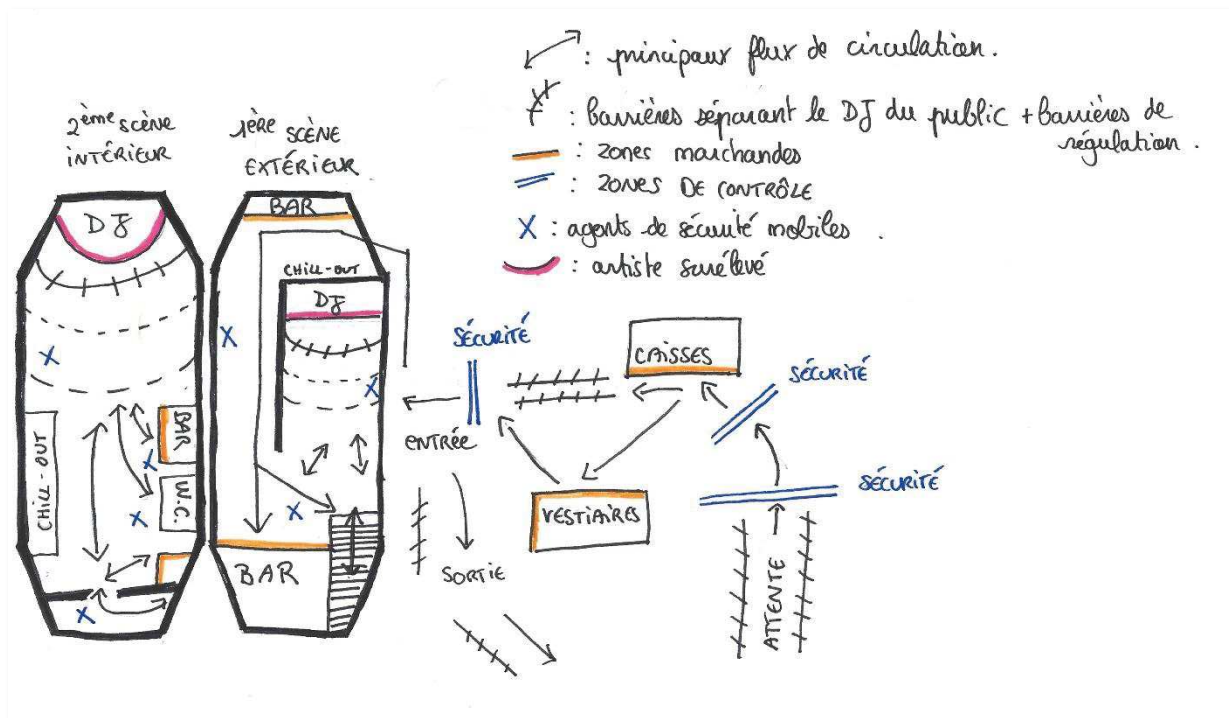 : principaux flux de circulation.
: barrières séparant le DJ du public + barrières de
régulation.
: zones marchandes
: ZONES DE CONTRÔLE
X : agents de sécurité mobiles.
: artiste surélevé
2ème SCÈNE
INTÉRIEUR
1ÈRE SCÈNE
EXTÉRIEUR
DJ
CHILL-OUT
BAR
W.C.
BAR
CHILL-OUT
DJ
BAR
SÉCURITÉ
ENTRÉE
SORTIE
CAISSES
VESTIAIRES
SÉCURITÉ
SÉCURITÉ
ATTENTE